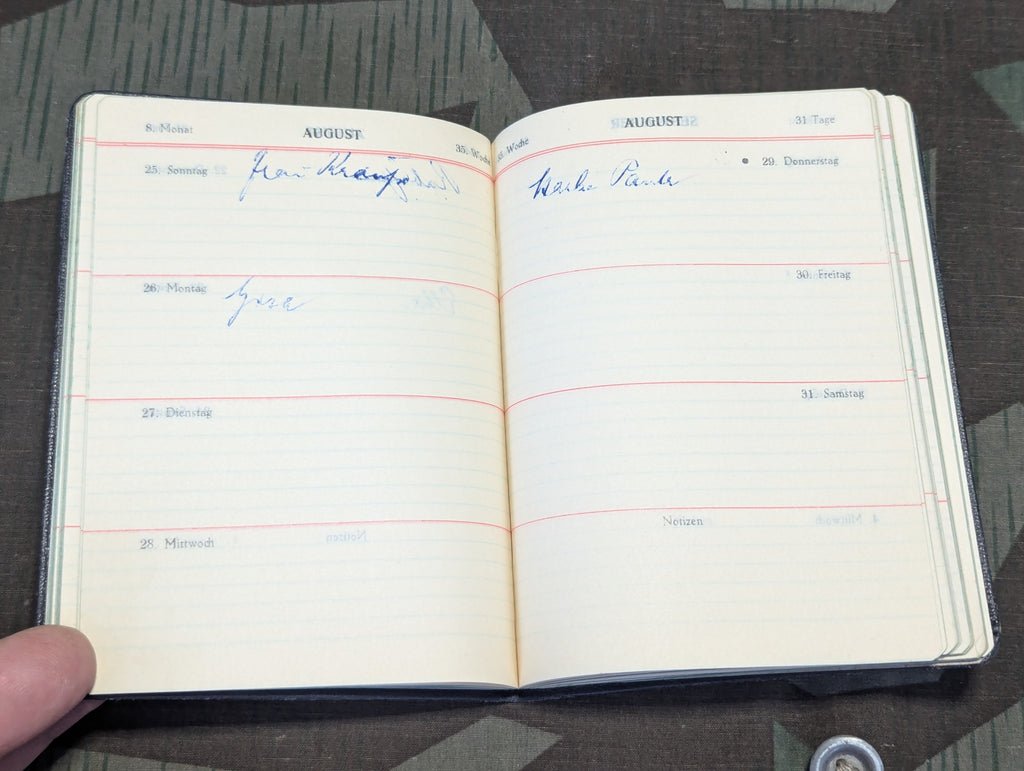 8. Monat
AUGUST
35. Woche
25. Sonntag
Frau
26. Montag
27. Dienstag
28. Mittwoch
AUGUST
31 Tage
35. Woche
29. Donnerstag
30. Freitag
31. Samstag
Notizen